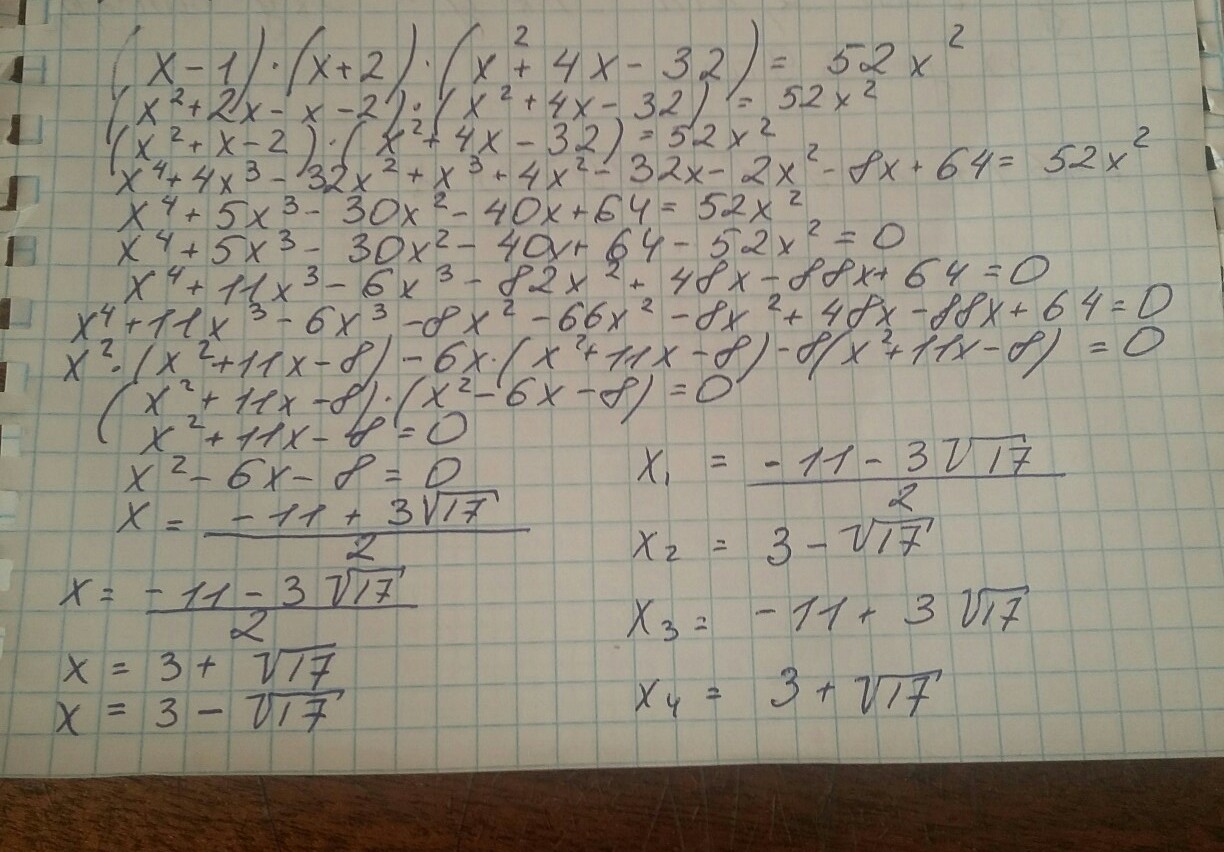 (x-1)·(x+2)·(x²+4x-32) = 52x²
(x²+2x-x-2)·(x²+4x-32) = 52x²
(x²+x-2)·(x²+4x-32) = 52x²
x⁴+4x³-32x²+x³+4x²-32x-2x²-8x+64 = 52x²
x⁴+5x³-30x²-40x+64 = 52x²
x⁴+5x³-30x²-40x+64-52x² = 0
x⁴+11x³-6x³-82x²+48x-88x+64 = 0
x⁴+11x³-6x³-8x²-66x²-8x²+48x-88x+64 = 0
x²·(x²+11x-8)-6x·(x²+11x-8)-8(x²+11x-8) = 0
(x²+11x-8)·(x²-6x-8) = 0
x²+11x-8 = 0
x²-6x-8 = 0
x = (-11+3√17)/2
x = (-11-3√17)/2
x = 3+√17
x = 3-√17
x₁ = (-11-3√17)/2
x₂ = 3-√17
x₃ = -11+3√17
x₄ = 3+√17